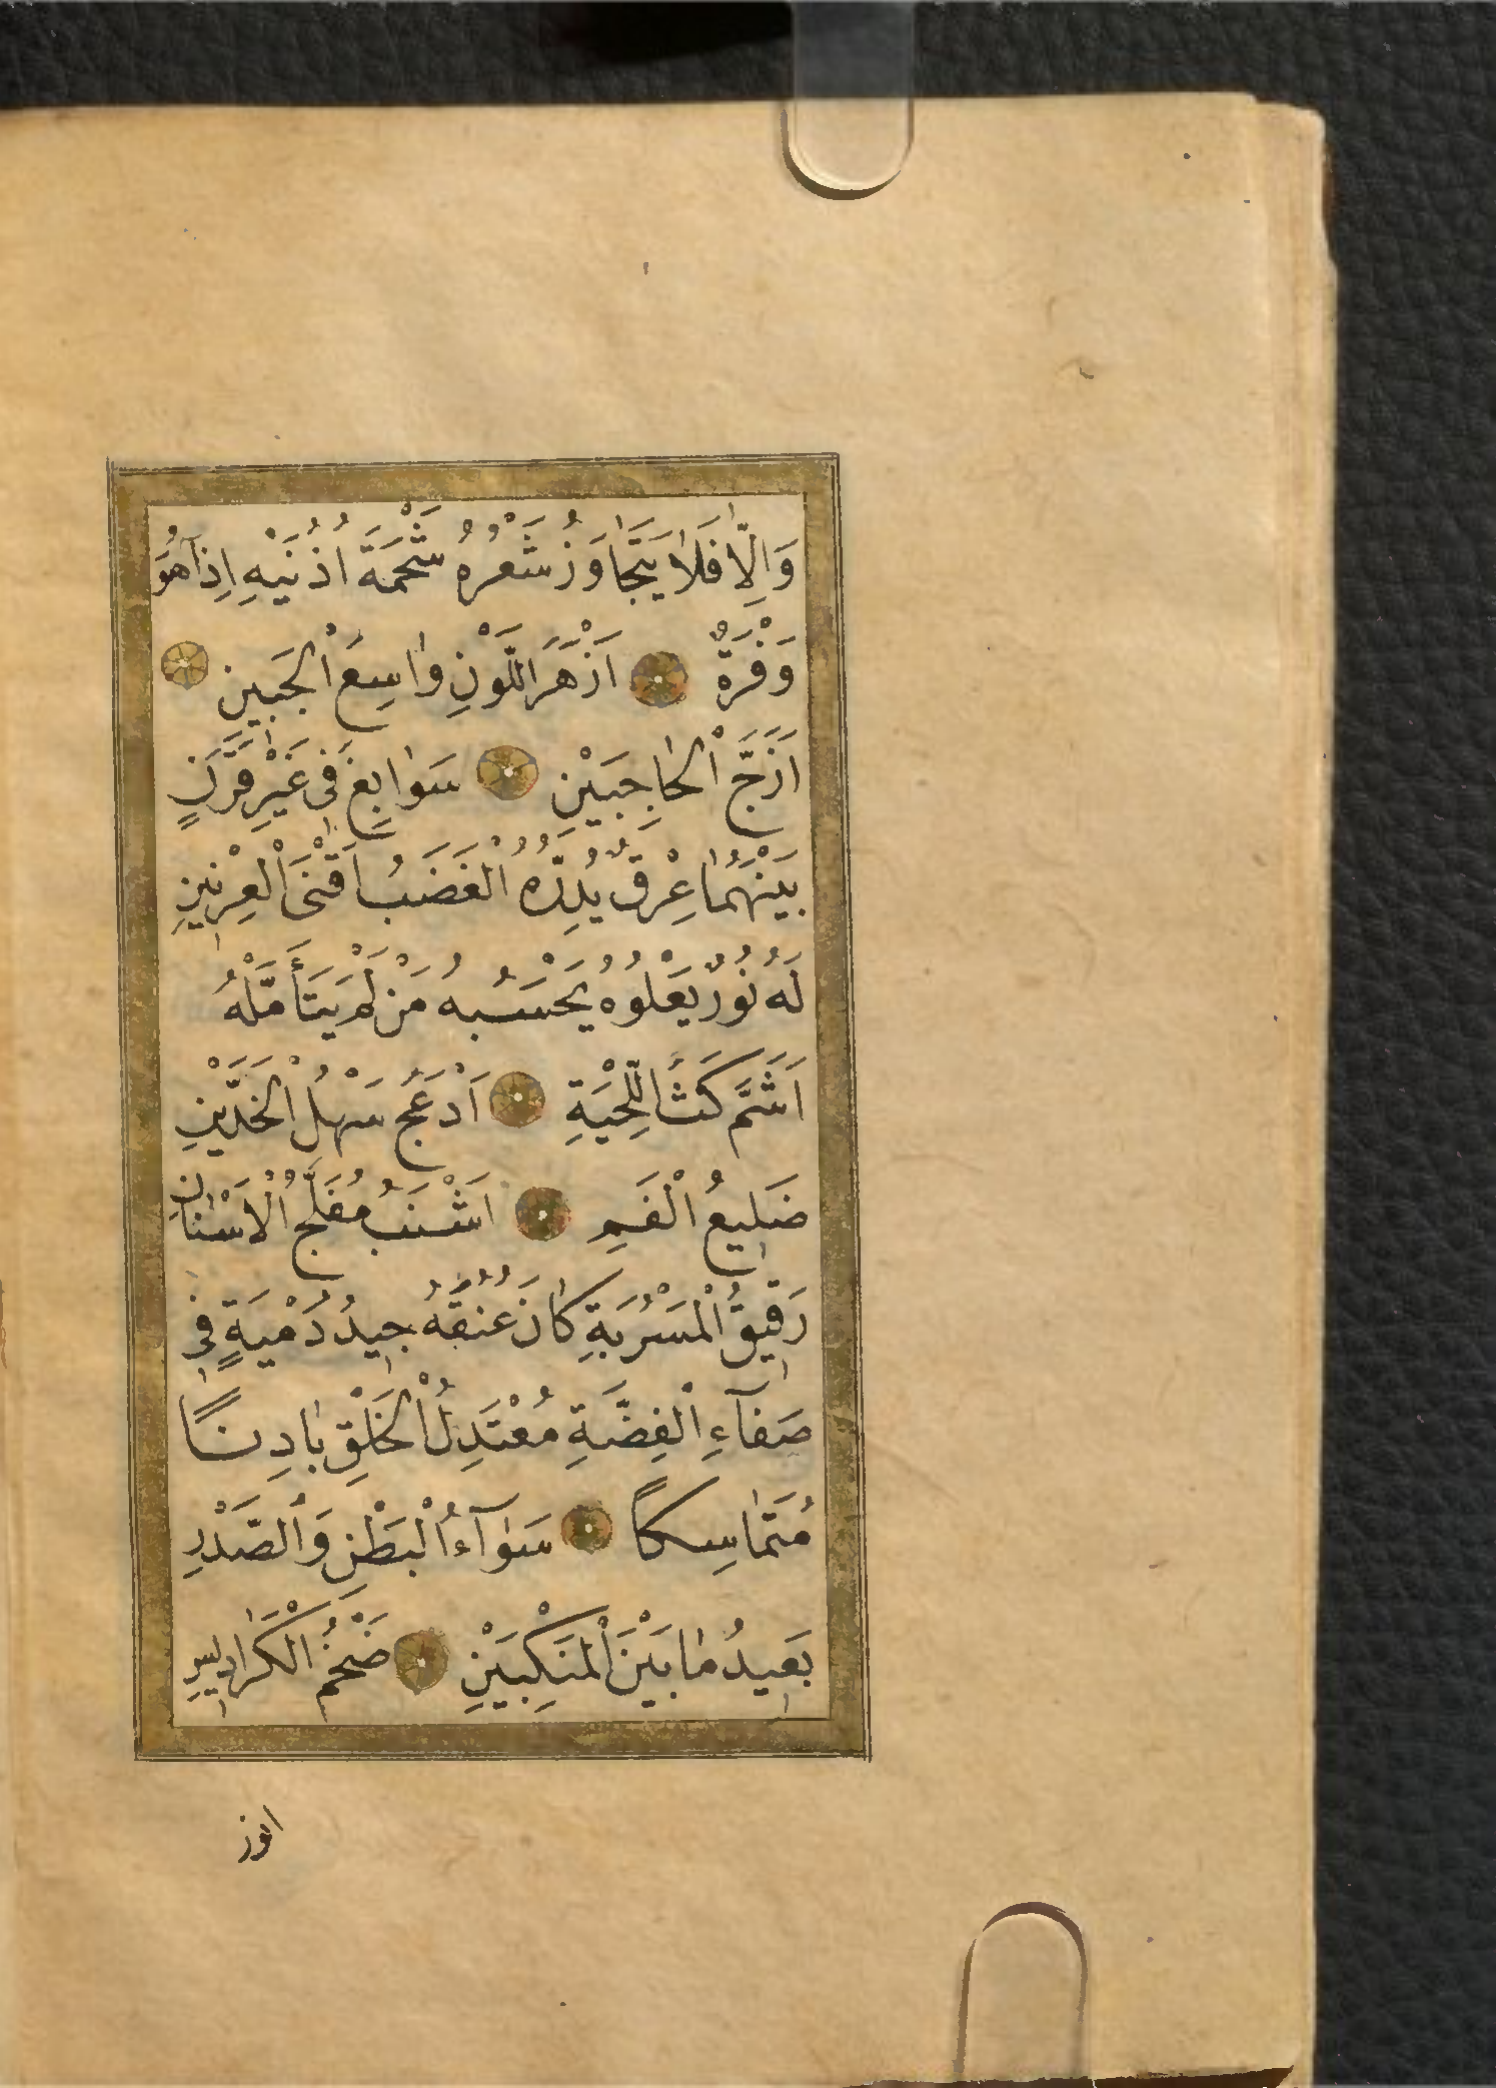 وَاِلَّا فَلَا يَتَجَاوَزُ شَعْرُهُ شَحْمَةَ اُذُنَيْهِ اِذَا هُوَ
وَفْرَةٌ اَزْهَرَ اللَّوْنِ وَاسِعَ الْجَبِينِ
اَزَجَّ الْحَاجِبَيْنِ سَوَابِغَ فِي غَيْرِ قَرَنٍ
بَيْنَهُمَا عِرْقٌ يُدِرُّهُ الْغَضَبُ اَقْنَى الْعِرْنِينِ
لَهُ نُورٌ يَعْلُوهُ يَحْسَبُهُ مَنْ لَمْ يَتَأَمَّلْهُ
اَشَمَّ كَثَّ اللِّحْيَةِ اَدْعَجَ سَهْلُ الْخَدَّيْنِ
ضَلِيعُ الْفَمِ اَشْنَبُ مُفَلَّجُ الْاَسْنَانِ
رَقِيقُ الْمَسْرُبَةِ كَانَ عُنُقُهُ جِيدُ دُمْيَةٍ فِي
صَفَآءِ الْفِضَّةِ مُعْتَدِلُ الْخَلْقِ بَادِنًا
مُتَمَاسِكًا سَوَآءُ الْبَطْنِ وَالصَّدْرِ
بَعِيدُ مَا بَيْنَ الْمَنْكِبَيْنِ ضَخْمُ الْكَرَادِيسِ
انور